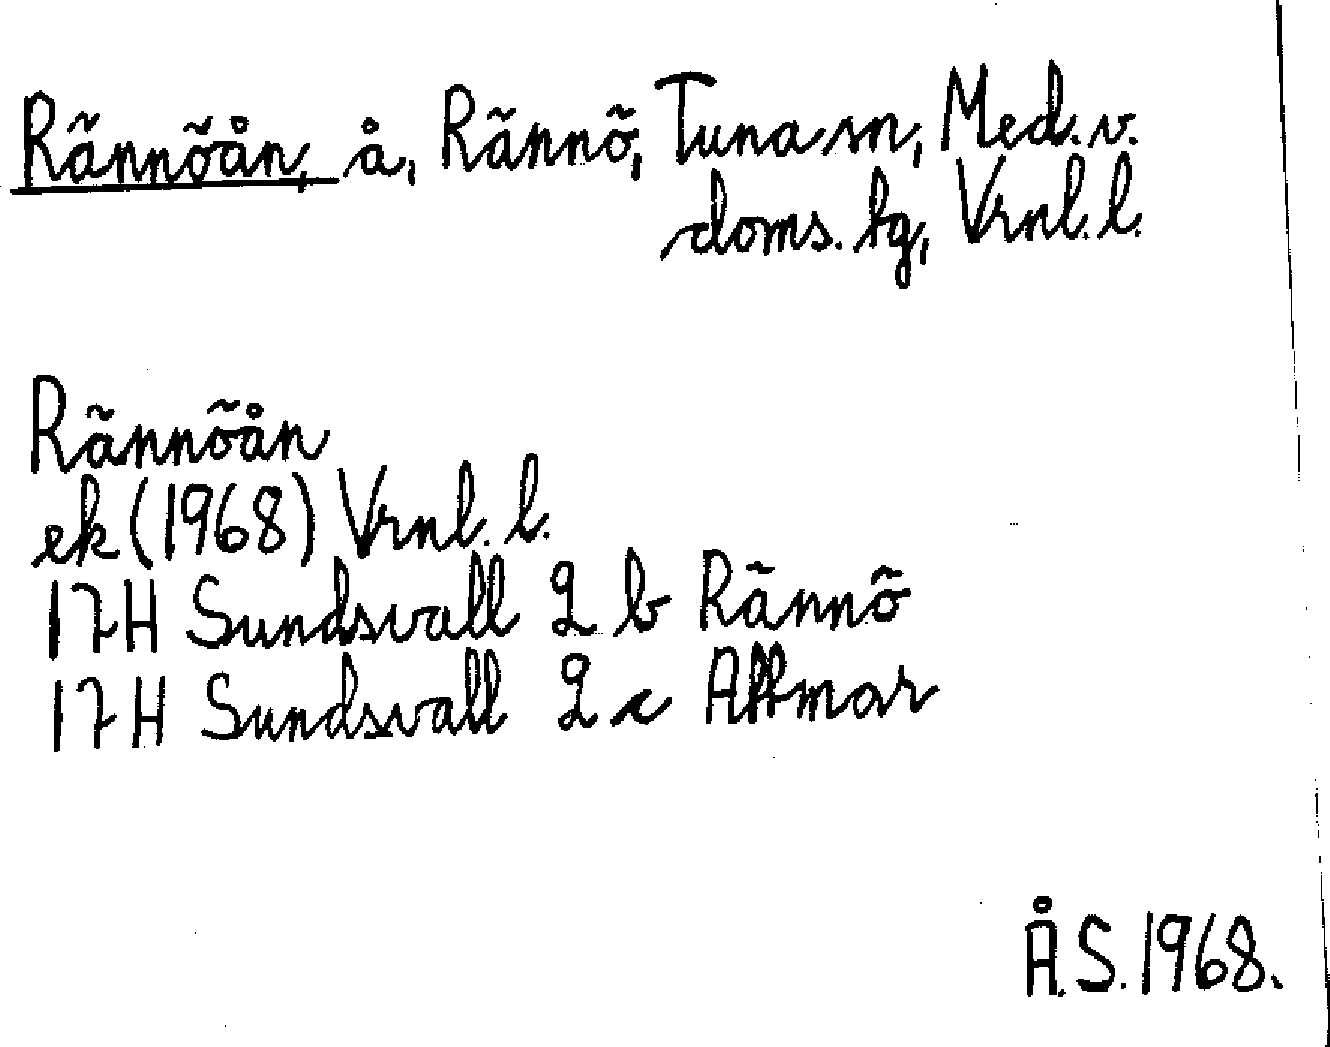 Rännöån, å, Rännö, Tuna sn, Med. v.
doms. tg, Vrnl. l.
Rännöån
ek (1968) Vrnl. l.
17H Sundsvall 2 b Rännö
17H Sundsvall 2 c Attmar
Å.S. 1968.